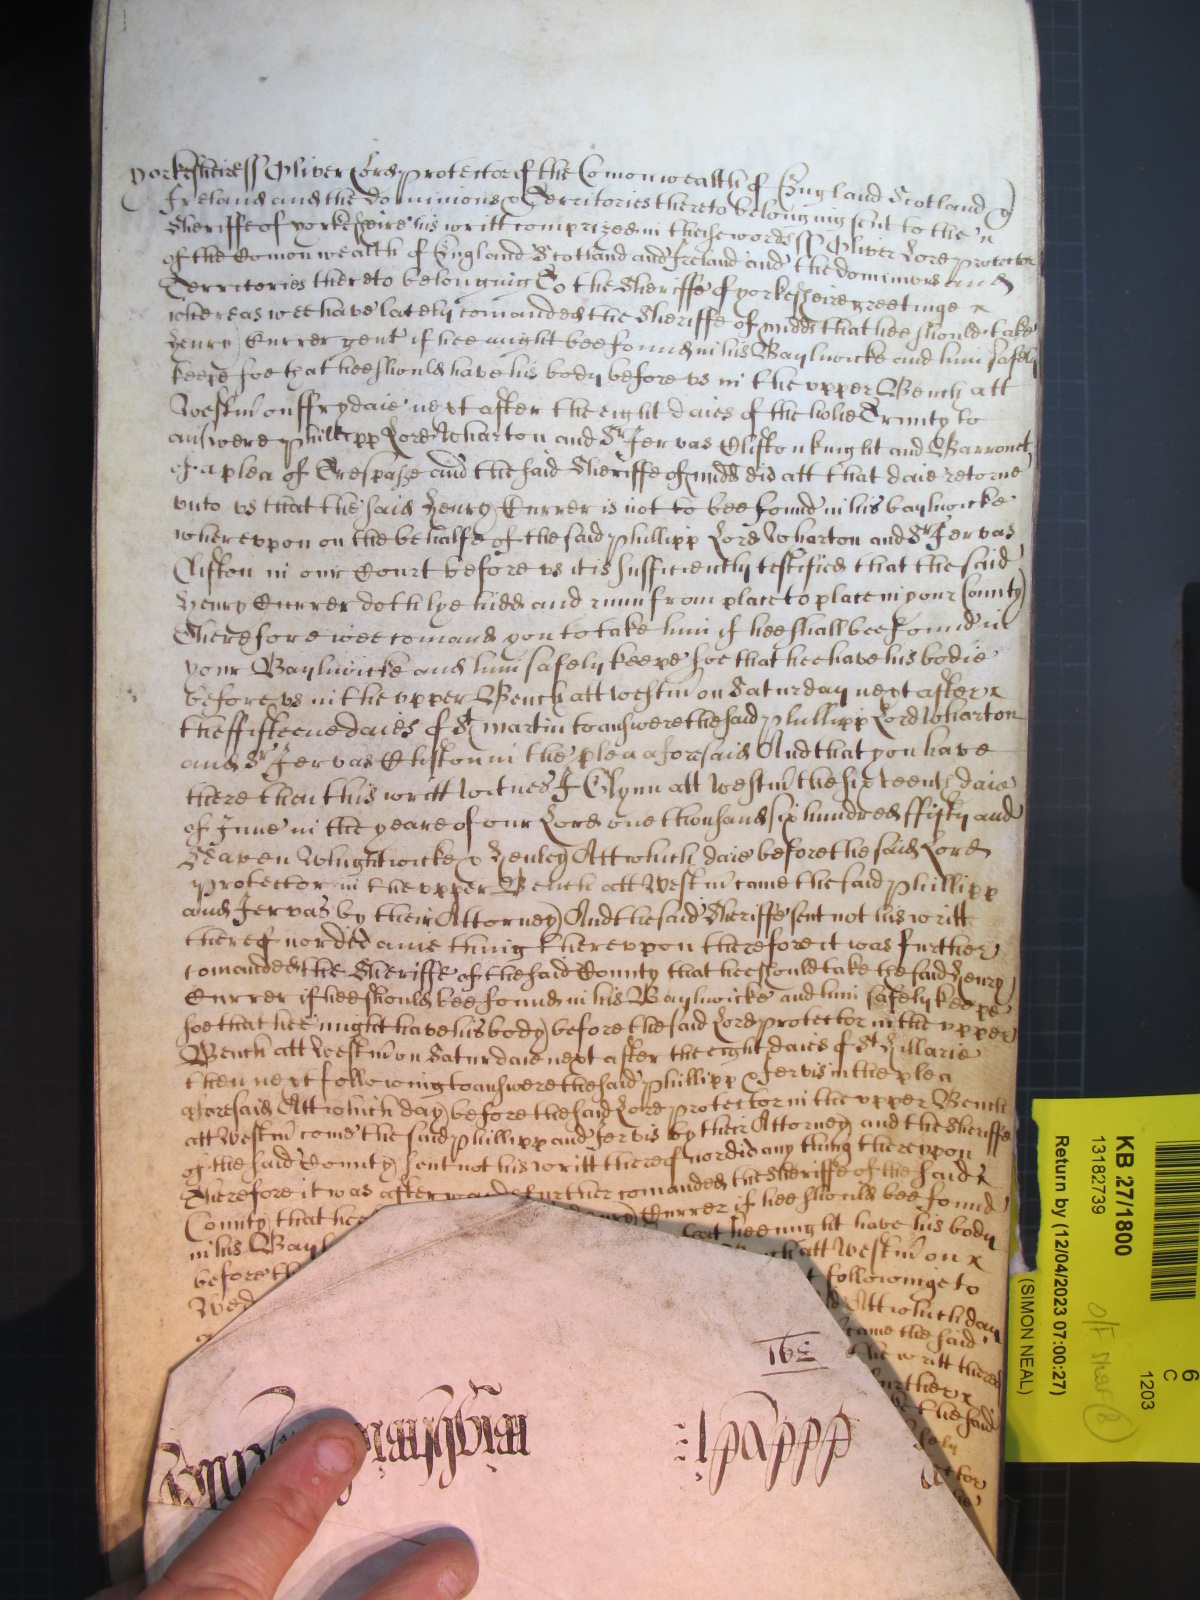 Yorkesheire ss Oliver Lord Protector of the Comonwealth of England Scotland &
Ireland and the dominions & Territories thereto belonging sent to the
Sheriffe of Yorkesheire his writt comprized in these words ss Oliver Lord Protector
of the Comonwealth of England Scotland and Ireland and the dominions and
Territories thereto belonging To the Sheriffe of Yorkesheire greetinge x
whereas wee have lately comanded the Sheriffe of Midd that hee should take
Henry Currer gent if hee might bee found in his Baylwicke and him safely
keepe soe that hee should have his body before us in the upper Bench att
Westm on ffrydaie next after the eight daies of the holie Trinity to
answere Phillipp Lord Wharton and Sr Jervas Clifton knight and Barronet
of a plea of Trespasse and the said Sheriffe of Midd did att that daie retorne
unto us that the said Henry Currer is not to bee found in his baylwicke
whereupon on the behalfe of the said Phillipp Lord Wharton and Sr Jervas
Clifton in our Court before us it is sufficiently testified that the said
Henry Currer doth lye hidd and runn from place to place in your County
Therefore wee comand you to take him if hee shall bee found in
your Baylwicke and him safely keepe soe that hee have his bodie
before us in the upper Bench att Westm on Saturday next after x
the fifteene daies of St Martin to answere the said Phillipp Lord Wharton
and Sr Jervas Clifton in the plea aforesaid And that you have
there then this writt Witnes J Glynn att Westm the sixteenth daie
of June in the yeare of our Lord one thousand six hundred ffifty and
Seaven Wightwicke & Henley Att which daie before the said Lord
Protector in the upper Bench att Westm came the said Phillipp
and Jervas by their Attorney And the said Sheriffe sent not his writt
thereof nor did anie thing thereupon therefore it was further
comanded the Sheriffe of the said County that hee should take the said Henry
Currer if hee should bee found in his Baylwicke and him safely keepe
soe that hee might have his body before the said Lord Protector in the upper
Bench att Westm on Saturdaie next after the eight daies of St Hillarie
then next following to answere the said Phillipp & Jervis in the plea
aforesaid Att which day before the said Lord Protector in the upper Bench
att Westm come the said Phillipp and Jervis by their Attorney and the Sheriffe
of the said County sent not his writt thereof nor did any thing thereupon
Therefore it was afterward further comanded the Sheriffe of the said x
County that hee Currer if hee should bee found
in his Bayl hee might have his body
before th att Westm on x
Wed followinge to
Att which day
came the said
writt thereof
further x
the said
KB 27/1800
13182739
Return by (12/04/2023 07:00:27)
(SIMON NEAL)
6
C
1203